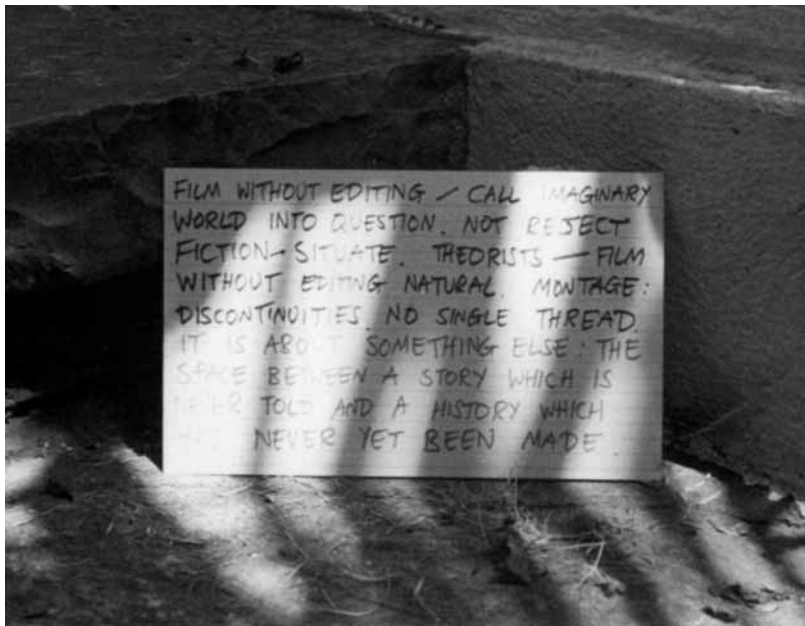 FILM WITHOUT EDITING / CALL IMAGINARY
WORLD INTO QUESTION. NOT REJECT
FICTION - SITUATE. THEORISTS — FILM
WITHOUT EDITING NATURAL. MONTAGE:
DISCONTINUITIES. NO SINGLE THREAD.
IT IS ABOUT SOMETHING ELSE: THE
SPACE BETWEEN A STORY WHICH IS
NEVER TOLD AND A HISTORY WHICH
NEVER YET BEEN MADE